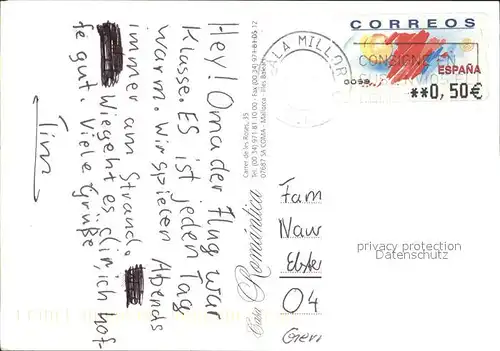 Hey! Oma der Flug war
Klasse. ES ist jeden Tag
warm. Wir spielen Abends
immer am Strand.
Wiegeht es dir, ich hof-
fe gut. Viele Grüße
Tim
Casa Romántica
Carrer de les Roses, 35
07687 SA COMA - Mallorca - Illes Balears
Tel. (00 34) 971 81 10 00 - Fax (00 34) 971 81 05 12
CALA MILLOR
CORREOS
CONSIGNE EN
ESPAÑA
0099
**0,50€
Fam
Naw
04
privacy protection
Datenschutz